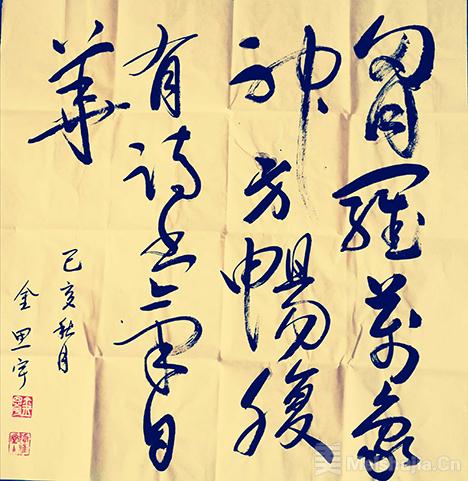 胷羅萬象
神方暢腹
有詩書氣自
華
己亥秋月
金思宇
Meishujia.Cn